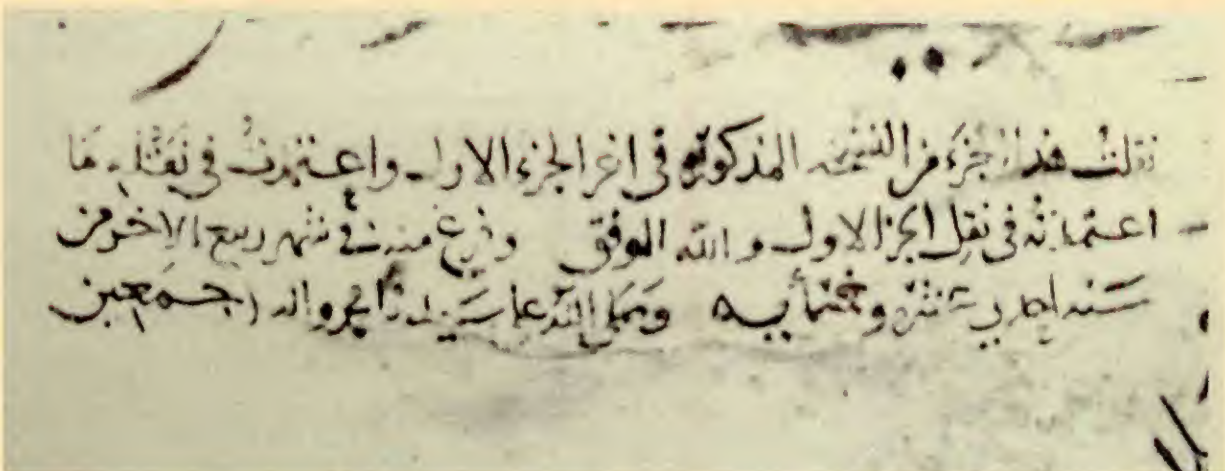 نقلت هذا الجزء من النسخة المذكورة في اخر الجزء الاول واعتمدت في نقله ما
اعتمدته في نقل الجزء الاول والله الموفق وفرغ منه في شهر ربيع الاخر من
سنة احدى عشرة وخمسمأيه وصلى الله على سيدنا محمد واله اجمعين